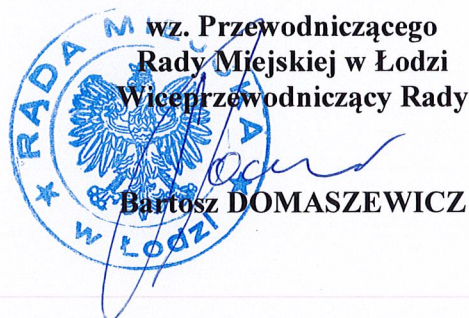 wz. Przewodniczącego
Rady Miejskiej w Łodzi
Wiceprzewodniczący Rady
Bartosz DOMASZEWICZ
RADA MIEJSKA
W ŁODZI